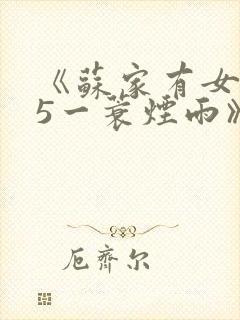 《蘇家有女
5一蓑煙雨》
厄齊尔